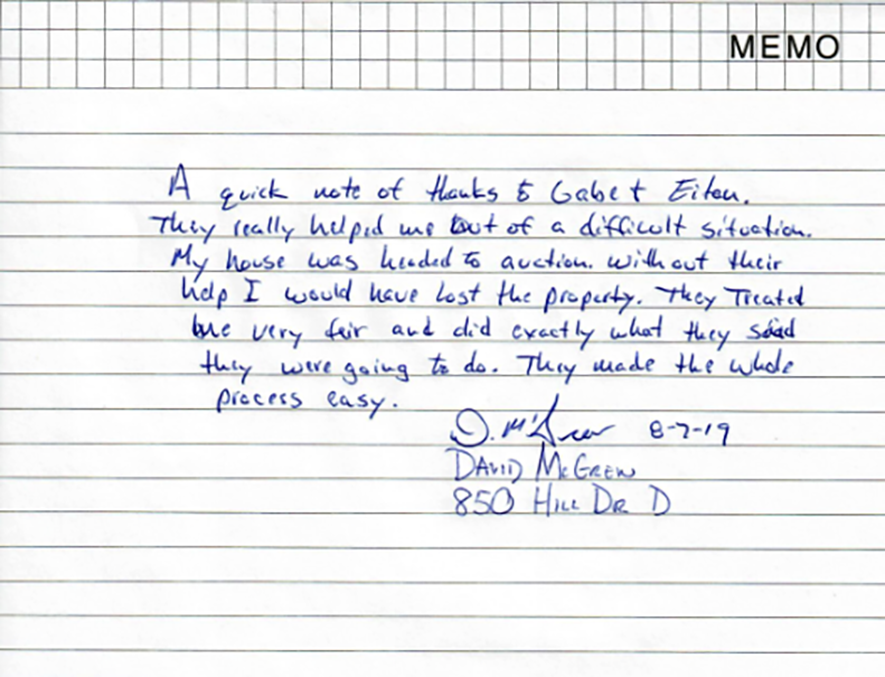 MEMO
A quick note of thanks to Gabe + Eitan.
They really helped me out of a difficult situation.
My house was headed to auction. without their
help I would have lost the property. They Treated
me very fair and did exactly what they said
they were going to do. They made the whole
process easy.
D. McGrew 8-7-19
DAVID McGREW
850 HILL DR D